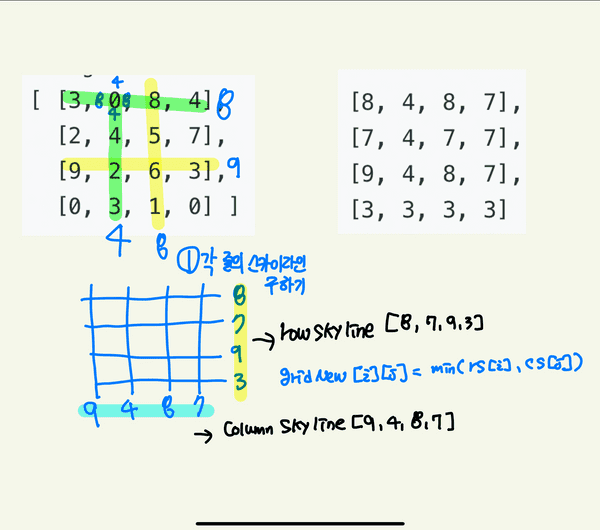 4
[ [3, 0, 8, 4], 8
8 8
4
[2, 4, 5, 7],
[9, 2, 6, 3], 9
[0, 3, 1, 0] ]
4 8
[8, 4, 8, 7],
[7, 4, 7, 7],
[9, 4, 8, 7],
[3, 3, 3, 3]
① 각 줄의 스카이라인
구하기
8
7
9
3
9 4 8 7
→ row skyline [8, 7, 9, 3]
gridNew [i][j] = min(rs[i], cs[j])
→ Column skyline [9, 4, 8, 7]